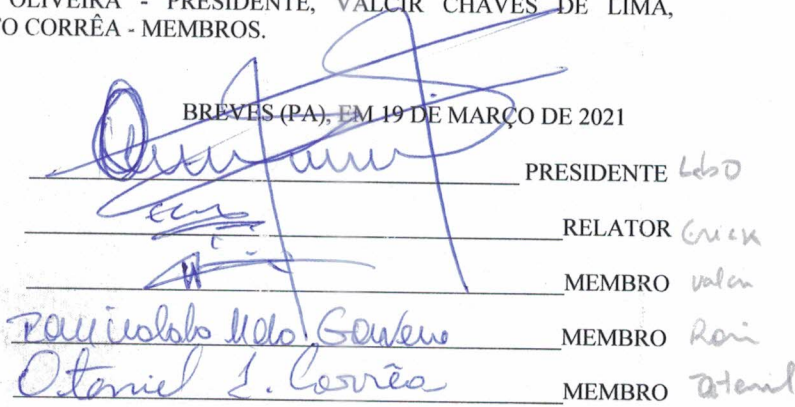 OLIVEIRA - PRESIDENTE, VALCIR CHAVES DE LIMA,
TO CORRÊA - MEMBROS.
BREVES (PA), EM 19 DE MARÇO DE 2021
PRESIDENTE
RELATOR Erick
MEMBRO Valcir
MEMBRO
Otoniel L. Corrêa MEMBRO Otoniel